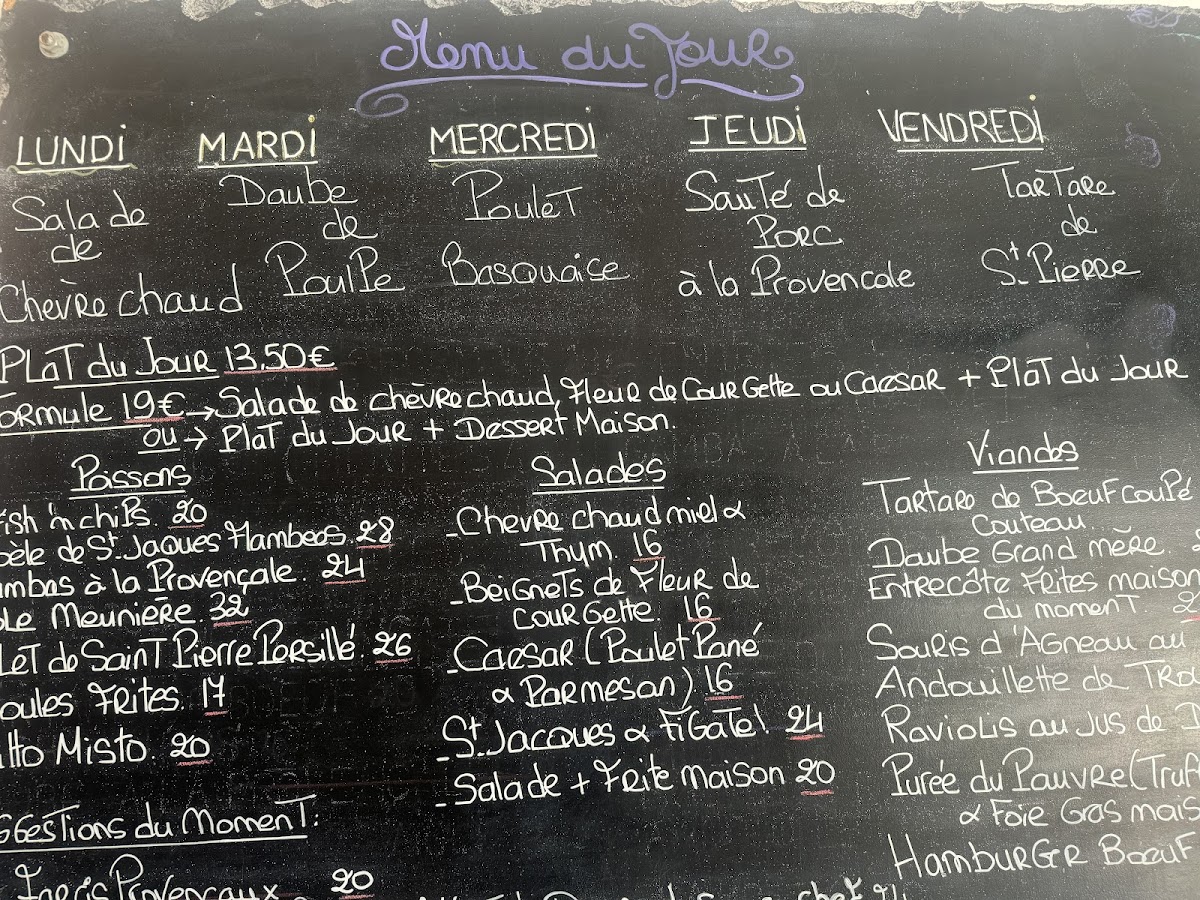 Menu du Jour
LUNDI MARDI MERCREDI JEUDI VENDREDI
Salade
de
Chèvre chaud
Daube
de
Poulpe
Poulet
Basquaise
Sauté de
Porc
à la Provencale
Tartare
de
St Pierre
PLAT du Jour 13,50€
ormule 19€ → Salade de chèvre chaud, Fleur de Courgette ou Caesar + Plat du Jour
ou → Plat du Jour + Dessert Maison.
Poissons
ish 'n chips. 20
èle de St. Jaques Flambées. 28
ambas à la Provençale. 24
le Meunière. 32
let de Saint Pierre Persillé. 26
oules Frites. 17
tto Misto. 20
ggestions du Moment:
Provencaux 20
Salades
- Chevre chaud miel &
Thym. 16
- Beignets de Fleur de
Courgette. 16
- Caesar (Poulet Pané
& Parmesan). 16
- St. Jacques & Figatel. 24
- Salade + Frite maison 20
Viandes
Tartare de Boeuf coupé
Couteau.
Daube Grand mère.
Entrecôte Frites maison
du moment.
Souris d'Agneau au
Andouillette de
Raviolis au Jus de
Purée du Pauvre (Truff
& Foie Gras mais
Hamburger Boeuf